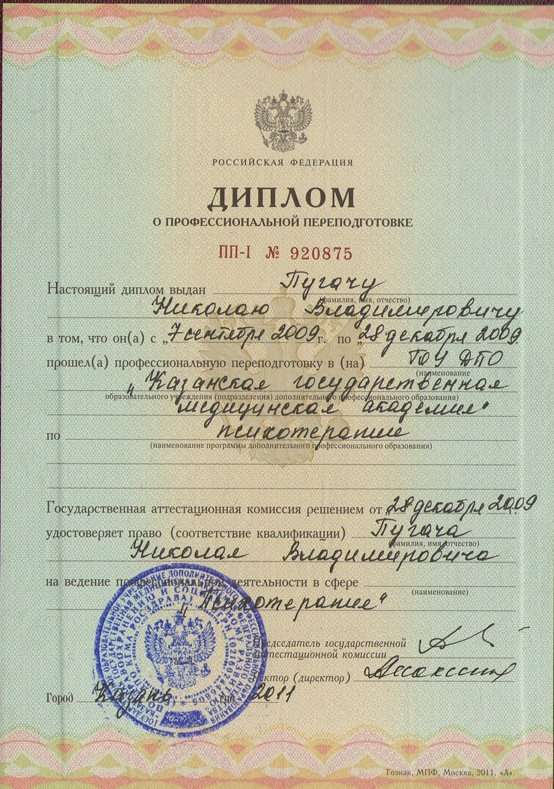 РОССИЙСКАЯ ФЕДЕРАЦИЯ
ДИПЛОМ
О ПРОФЕССИОНАЛЬНОЙ ПЕРЕПОДГОТОВКЕ
ПП-I № 920875
Настоящий диплом выдан Пугачу
(фамилия, имя, отчество)
Николаю Владимировичу
в том, что он(а) с „7 сентября 2009г. по „28 декабря 2009
прошел(а) профессиональную переподготовку в (на) ГОУ ДПО
(наименование
„Казанская государственная
образовательного учреждения (подразделения) дополнительного профессионального образования)
медицинская академия"
по психотерапии
(наименование программы дополнительного профессионального образования)
Государственная аттестационная комиссия решением от „28 декабря 2009
удостоверяет право (соответствие квалификации) Пугача
(фамилия, имя, отчество)
Николая Владимировича
на ведение профессиональной деятельности в сфере
(наименование)
„Психотерапия"
Председатель государственной
аттестационной комиссии
Ректор (директор)
Город Казань 2011
Гознак, МПФ, Москва, 2011, «А».